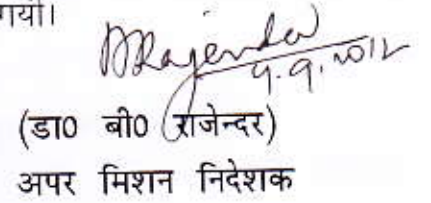 गयी।
BRajendar
4.9.2012
(डा0 बी0 राजेन्दर)
अपर मिशन निदेशक